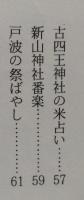 古四王神社の米占い………57
新山神社番楽……………59
戸波の祭ばやし…………61